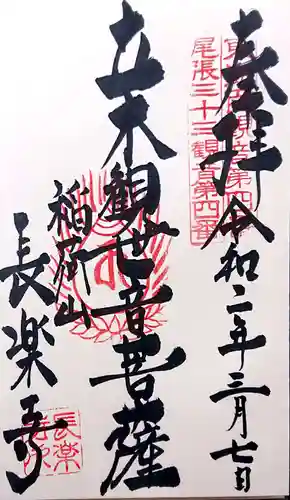 奉拝 令和二年三月七日
尾張三十三観音第四番
立木観世音菩薩
稲荷山
長楽寺